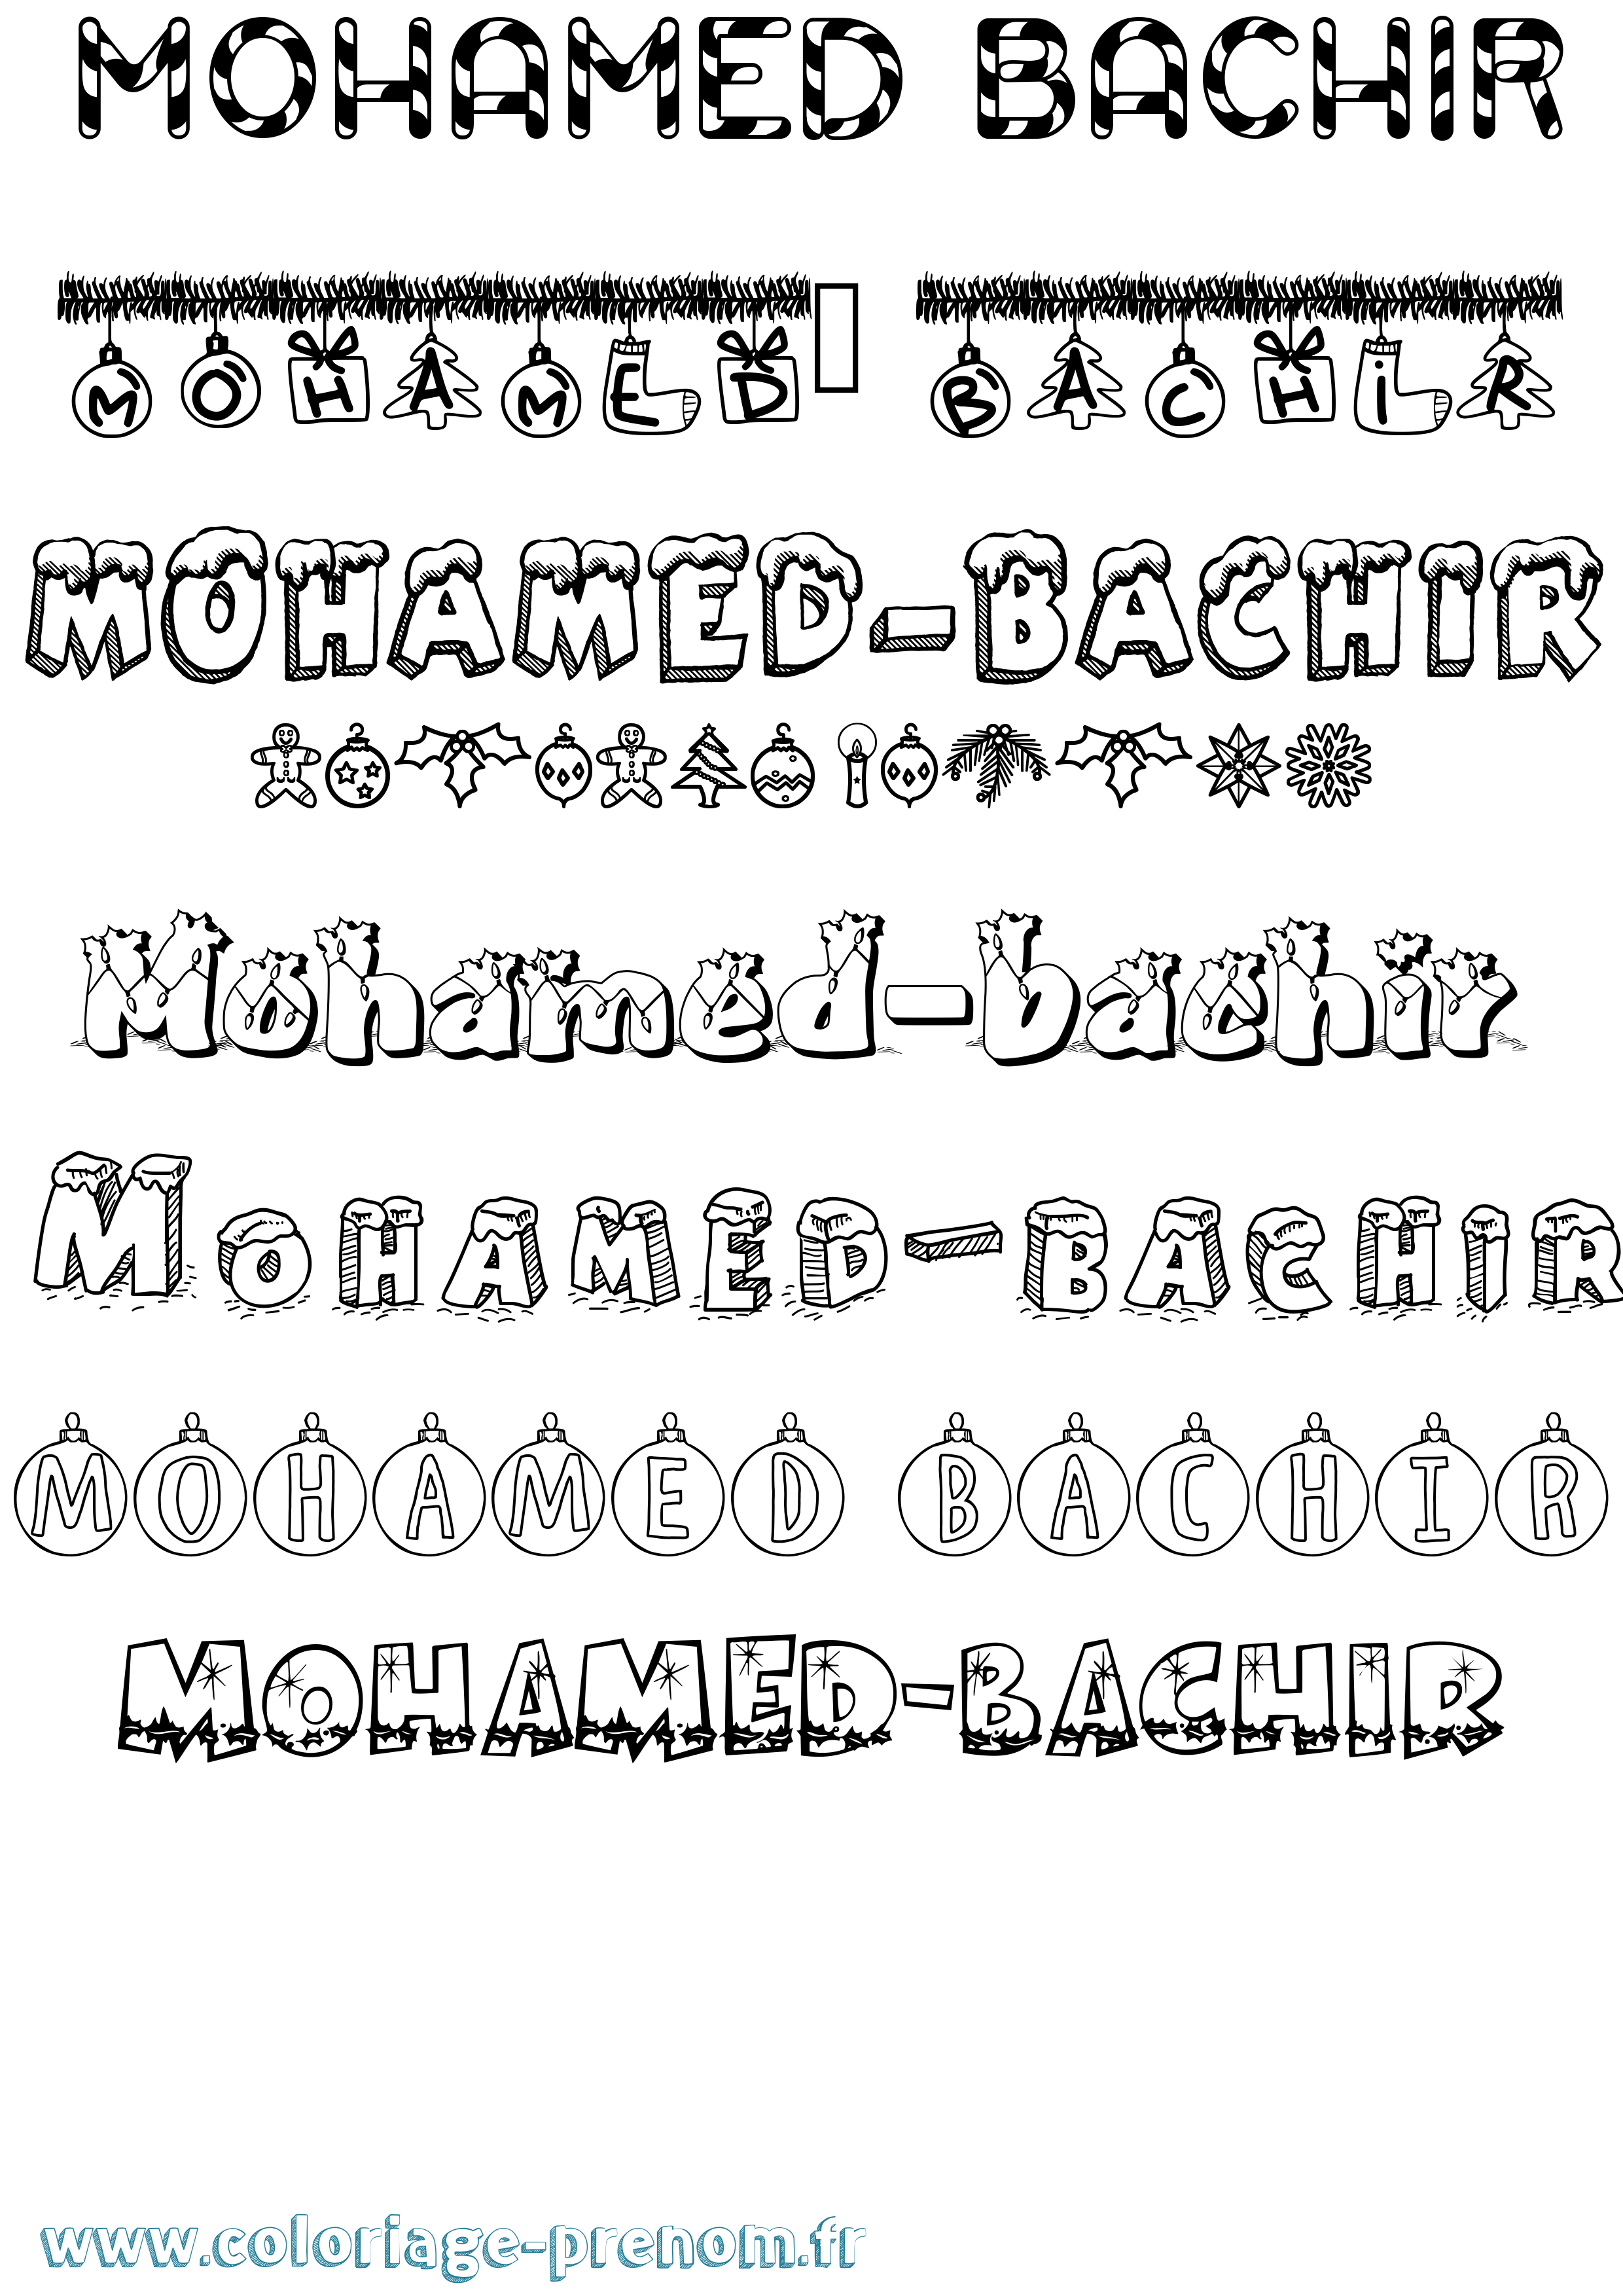 MOHAMED BACHIR
MOHAMED BACHiR
MOHAMED-BACHIR
Mohamed-bachir
MOHAMED-BACHIR
MOHAMED BACHIR
MOHAMED-BACHIR
www.coloriage-prenom.fr